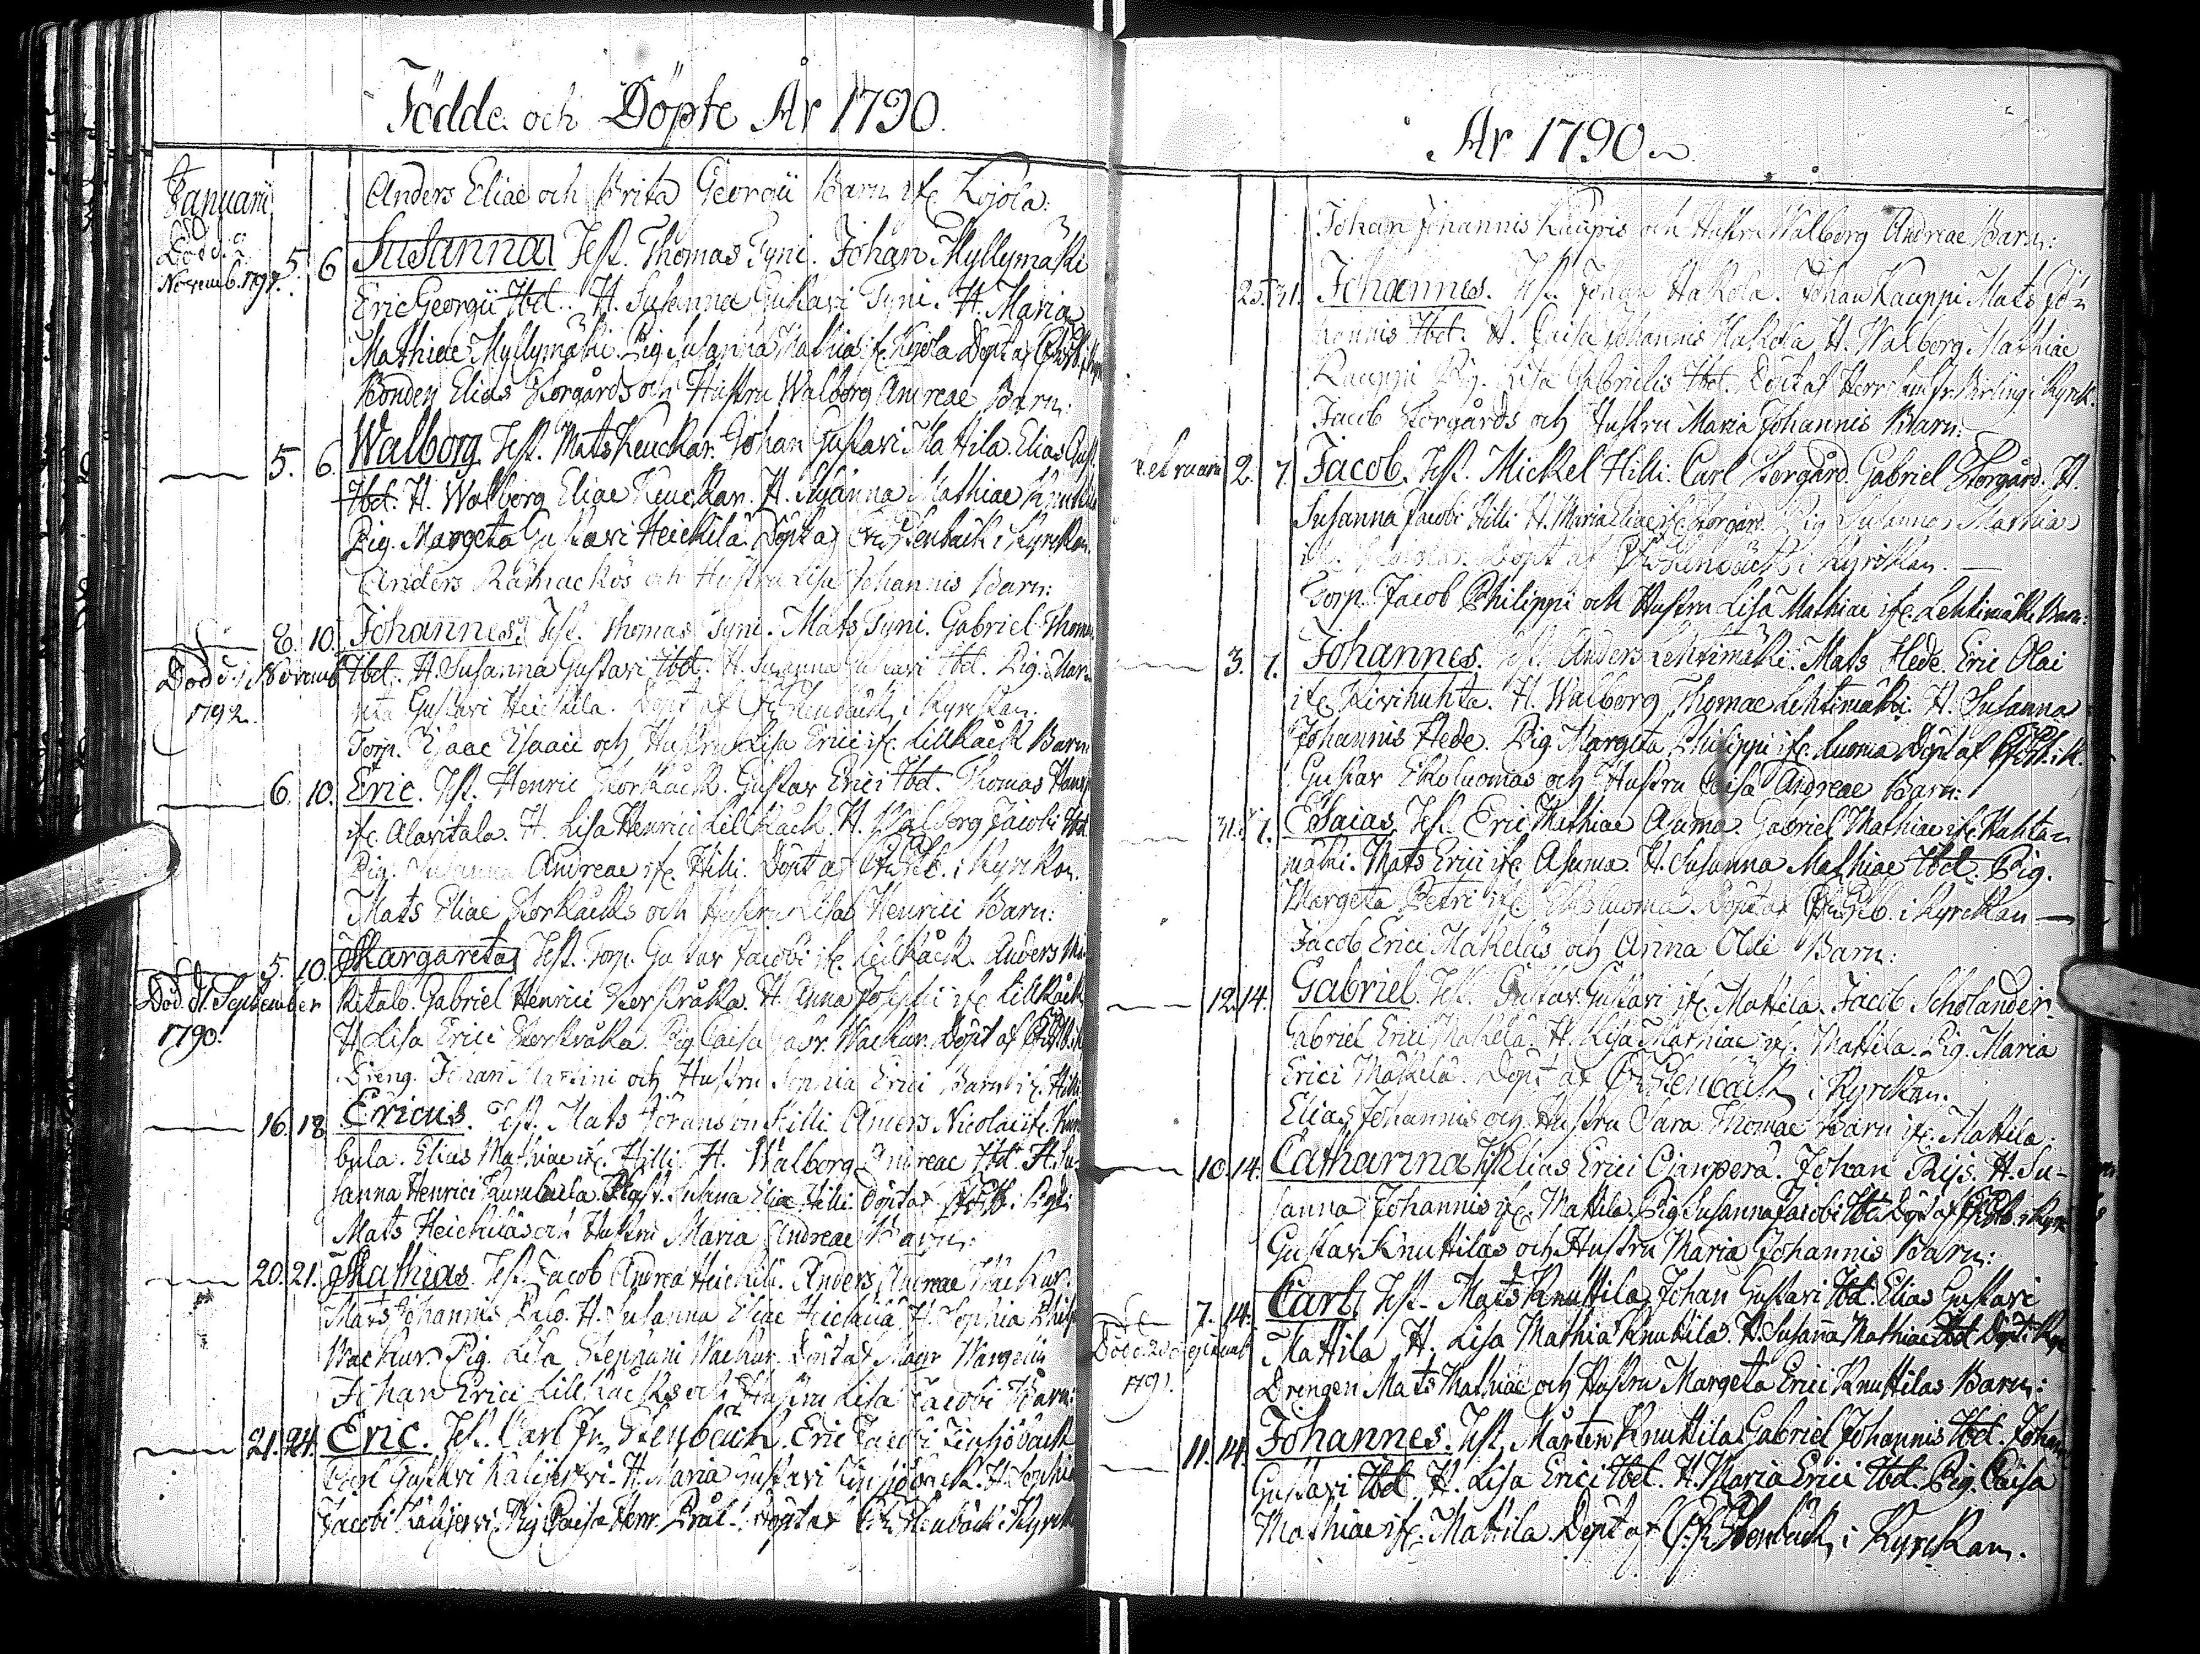 Födde och Döpte År 1790.
Januarii
Anders Eliae och Brita Georgii Barn ifr. Kojola:
Död d.
Novemb. 1797.
5. 6 Susanna Test. Thomas Tyni. Johan Myllymäki
Eric Georgii Ibd. H. Susanna Gustavi Tyni. H. Maria
Mathiae Myllymäki. Pig. Susanna Mathiae ifr. Kojola Döpt af
Bonden Elias Storgårds och Hustru Walborg Andreae Barn:
5. 6. Walborg Test. Mats Keuckar. Johan Gustavi Mattila. Elias Gust.
Ibd. H. Walborg Eliae Keuckar. H. Susanna Mathiae
Pig. Margeta Gustavi Heickilä. Döpt af Stenbäck i Kyrckan.
Anders och Hustru Lisa Johannis Barn:
8. 10. Johannes. Test. Thomas Tyni. Mats Tyni. Gabriel Thomae
Död d. 1 Novemb
1792.
Ibd. H. Susanna Gustavi Ibd. H. Susanna Gustavi Ibd. Pig. Mar-
geta Gustavi Heickilä. Döpt af Stenbäck i Kyrckan.
Torp. Isaac Isaaci och Hustru Lisa Erici ifr. Lillkåck Barn
6. 10. Eric. Test. Henric Storkåck. Gustav Erici Ibd. Thomas
ifr. Alavitala. H. Lisa Henrici Lillkåck. H. Walborg Jacobi Ibd
Pig. Susanna Andreae ifr. Hilli. Döpt af i Kyrckan.
Mats Eliae Storkåcks och Hustru Lisa Henrici Barn:
5. 10. Margareta Test. Torp. Gustav Jacobi ifr. Lillkåck. Anders
Död d. September
1790.
Gabriel Henrici H. Anna Josephi ifr. Lillkåck
H. Lisa Erici Pig. Caisa Wackur. Döpt af
Dreng. Johan Martini och Hustru Sophia Erici Barn ifr. Hilli
16. 18 Ericus. Test. Mats Göransson Hilli. Anders Nicolai ifr. Kum
bula. Elias Mathiae ifr. Hilli. H. Walborg Andreae Ibd. H. Su-
sanna Henrici Kumbula. Pig. Susanna Eliae Hilli. Döpt af
Mats Heickiläs och Hustru Maria Andreae Barn:
20. 21. Mathias. Test. Jacob Andreae Heickilä. Anders Andreae Wackur.
Mats Johannis Palo. H. Susanna Eliae Heickilä. H. Sophia
Wackur. Pig. Lisa Stephani Wackur. Döpt af
Johan Erici Lillkåcks och Hustru Lisa Jacobi Barn:
21. 24. Eric. Test. Carl Fr. Stenbäck. Eric Jacobi
Carl Gustavi Kalijervi. H. Maria Gustavi H. Sophia
Jacobi Kalijervi. Pig. Caisa Henr. Döpt af Stenbäck i Kyrck
År 1790.
Johan Johannis Kauppis och Hustru Walborg Andreae Barn:
25. 31. Johannes. Test. Johan Hakola. Johan Kauppi. Mats Jo-
hannis Ibd. H. Caisa Johannis Hakola. H. Walborg Mathiae
Kauppi. Pig. Lisa Gabrielis Ibd. Döpt af Herr i Kyrck.
Jacob Storgårds och Hustru Maria Johannis Barn:
Februarii 2. 7. Jacob. Test. Mickel Hilli. Carl Storgård. Gabriel Storgård. H.
Susanna Jacobi Hilli. H. Maria Eliae ifr. Storgård. Pig. Susanna Mathiae
Döpt af Stenbäck i Kyrckan.
Torp. Jacob Philippi och Hustru Lisa Mathiae ifr. Lehtimäki Barn:
3. 7. Johannes. Test. Anders Lehtimäki. Mats Hede. Eric Olai
ifr. Kivihuhta. H. Walborg Thomae Lehtimäki. H. Susanna
Johannis Hede. Pig. Margeta Philippi ifr. Luoma Döpt af
Gustav Ekoluomas och Hustru Caisa Andreae Barn:
31. 7. Esaias Test. Eric Mathiae Asuma. Gabriel Mathiae ifr. Huhta-
mäki. Mats Erici ifr. Asuma. H. Susanna Mathiae Ibd. Pig.
Margeta Petri ifr. Ekoluoma. Döpt af i Kyrckan
Jacob Erici Mäkeläs och Anna Olai Barn:
12. 14. Gabriel. Test. Gustav Gustavi ifr. Mattila. Jacob Scholander.
Gabriel Erici Mäkelä. H. Lisa Mathiae ifr. Mattila. Pig. Maria
Erici Mäkelä. Döpt af Stenbäck i Kyrckan.
Elias Johannis och Hustru Sara Thomae Barn ifr. Mattila.
10. 14. Catharina Test. Elias Erici Ojanperä. Johan Rijs. H. Su-
sanna Johannis ifr. Mattila. Pig. Susanna Jacobi Ibd. Döpt af
Gustav Knuttilas och Hustru Maria Johannis Barn:
7. 14. Carl Test. Mats Knuttila. Johan Gustavi Ibd. Elias Gustavi
Död d. 2 September
1791.
Mattila. H. Lisa Mathiae Knuttilas. H. Susanna Mathiae Ibd. Döpt i
Drengen Mats Mathiae och Hustru Margeta Erici Knuttilas Barn:
11. 14. Johannes. Test. Mårten Knuttila. Gabriel Johannis Ibd. Johan
Gustavi Ibd. H. Lisa Erici Ibd. H. Maria Erici Ibd. Pig. Caisa
Mathiae ifr. Mattila. Döpt af Stenbäck i Kyrckan.